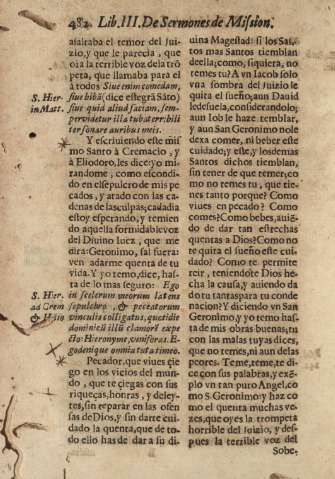 482 Lib. III. De Sermones de Mission.
asaltaba el temor del Jui-
zio, y que le parecia, que
oìa la terrible voz de la trõ
peta, que llamaba para el
à todos Sive enim comedam,
sive bibã (dice este grã Sãto)
sive quid aliud faciam, sem-
per videtur illa tuba terribili
ter sonare auribus meis.
Y escriviendo este mis
mo Santo à Cremacio, y
à Eliodoro, les dice: yo mi-
randome, como escondi-
do en el sepulcro de mis pe
cados, y atado con las ca-
denas de las culpas; cada dia
estoy esperando, y remien
do aquella formidable voz
del Divino Juez, que me
dira: Geronimo, sal fuera:
ven adarme quenta de tu
vida. Y yo temo, dice, has-
ta de lo mas seguro: Ego
in scelerum meorum latens
sepulchro, & peccatorum
vinculis colligatus, quotidie
dominicũ illũ clamorẽ expe
cto: Hieronyme, veni foras. E-
go denique omnia tuta timeo.
Pecador, que vives cie-
go en los vicios del mun-
do, que te ciegas con sus
riquezas, honras, y deley-
tes, sin reparar en las ofen
sas de Dios, y sin darte cui-
dado la quenta, que de to-
do ello has de dar a su di-
S. Hier-
in Matt.
S. Hier.
ad Crem
& Helio
vina Magestad: si los San-
tos mas Santos tiemblan
de ella; como, siquiera, no
temes tu? A un Jacob solo
vna sombra del Juizio le
quita el sueño, aun David
le desuela, considerandolo;
aun Iob le haze temblar,
y aun San Geronimo no le
dexa comer, ni beber este
cuidado; y este, y los demas
Santos dichos tiemblan,
sin tener de que temer; co
mo no remes tu, que tie-
nes tanto porque? Como
vives en pecado? Como
comes? Como bebes, aviẽ-
do de dar tan estrechas
quentas a Dios? Como no
te quita el sueño este cui-
dado? Como te permite
reir, teniendote Dios he-
cha la causa, y aviendo da
do tu tan raspara tu conde
nacion? Y diciendo vn San
Geronimo, y yo temo has-
ta de mis obras buenas; tu
con las malas tuyas dices,
que no temes, ni aun de las
peores. Teme, teme, te di-
ce con sus palabras, y exẽ-
plo vn tan puro Angel, co
mo S. Geronimo: y haz co
mo el quenta muchas ve-
zes, que oyes la trompeta
horrible del Juizio, y des-
pues la terrible voz del
Sobe-